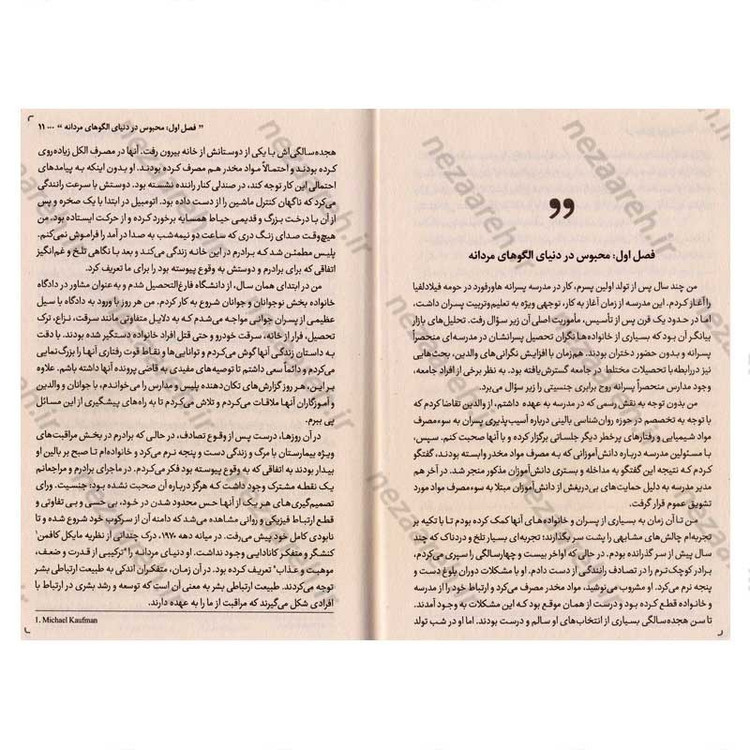 فصل اول: محبوس در دنیای الگوهای مردانه
من چند سال پس از تولد اولین پسرم، کار در مدرسه پسرانه هاورفورد در حومه فیلادلفیا
را آغاز کردم. این مدرسه از زمان آغاز به کار، توجهی ویژه به تعلیم‌وتربیت پسران داشت،
اما در حدود یک قرن پس از تأسیس، مأموریت اصلی آن زیر سؤال رفت. تحلیل‌های بازار
بیانگر آن بود که بسیاری از خانواده‌ها نگران تحصیل پسرانشان در مدرسه‌ای منحصراً
پسرانه و بدون حضور دختران بودند. هم‌زمان با افزایش نگرانی‌های والدین، بحث‌هایی
نیز دررابطه‌با تحصیلات مختلط در جامعه گسترش‌یافته بود. به نظر برخی از افراد جامعه،
وجود مدارس منحصراً پسرانه روح برابری جنسیتی را زیر سؤال می‌برد.
من بدون توجه به نقش رسمی که در مدرسه به عهده داشتم، از والدین تقاضا کردم که
با توجه به تخصصم در حوزه روان‌شناسی بالینی درباره آسیب‌پذیری پسران به سوءمصرف
مواد شیمیایی و رفتارهای پرخطر دیگر جلساتی برگزار کرده و با آنها صحبت کنم. سپس،
با مسئولین مدرسه درباره دانش‌آموزانی که به مصرف مواد مخدر وابسته بودند، گفتگو
کردم که نتیجه این گفتگو به مداخله و بستری دانش‌آموزان مذکور منجر شد. در آخر هم
مدیر مدرسه به دلیل حمایت‌های بی‌دریغش از دانش‌آموزان مبتلا به سوءمصرف مواد مورد
تشویق عموم قرار گرفت.
من تا آن زمان به بسیاری از پسران و خانواده‌های آنها کمک کرده بودم تا با تکیه بر
تجربه‌ام چالش‌های مشابهی را پشت سر بگذارند؛ تجربه‌ای بسیار تلخ و دردناک که چند
سال پیش از سر گذرانده بودم. در حالی که اواخر بیست و چهارسالگی را سپری می‌کردم،
برادر کوچک‌ترم را در تصادف از دست دادم. او با مشکلات دوران بلوغ دست و
پنجه نرم می‌کرد. او مشروب می‌نوشید، مواد مخدر مصرف می‌کرد و ارتباط خود را از مدرسه
و خانواده قطع کرده بود و درست از همان موقع بود که این مشکلات به وجود آمدند.
تا سن هجده‌سالگی بسیاری از انتخاب‌های او سالم و درست بودند. اما او در شب تولد
” فصل اول: محبوس در دنیای الگوهای مردانه “ ... ۱۱
هجده‌سالگی‌اش با یکی از دوستانش از خانه بیرون رفت. آنها در مصرف الکل زیاده‌روی
کرده بودند و احتمالاً مواد مخدر هم مصرف کرده بودند. او بدون اینکه به پیامدهای
احتمالی این کار توجه کند، در صندلی کنار راننده نشسته بود. دوستش با سرعت رانندگی
می‌کرد که ناگهان کنترل ماشین را از دست داده بود. اتومبیل در ابتدا با یک صخره و پس
از آن با درخت بزرگ و قدیمی حیاط همسایه برخورد کرده و از حرکت ایستاده بود. من
هیچ‌وقت صدای زنگ دری که ساعت دو نیمه‌شب به صدا در آمد را فراموش نمی‌کنم.
پلیس مطمئن شد که برادرم در این خانه زندگی می‌کند و بعد با نگاهی تلخ و غم‌انگیز
اتفاقی که برای برادرم و دوستش به وقوع پیوسته بود را برای ما تعریف کرد.
من در ابتدای همان سال، از دانشگاه فارغ‌التحصیل شدم و به عنوان مشاور در دادگاه
خانواده بخش نوجوانان و جوانان شروع به کار کردم. من هر روز با ورود به دادگاه با سیل
عظیمی از پسران جوانی مواجه می‌شدم که به دلایل متفاوتی مانند سرقت، نزاع، ترک
تحصیل، فرار از خانه، سرقت خودرو و حتی قتل افراد خانواده دستگیر شده بودند. با دقت
به داستان زندگی آنها گوش می‌کردم و توانایی‌ها و نقاط قوت رفتاری آنها را بزرگ‌نمایی
می‌کردم و دائماً سعی داشتم تا توصیه‌های مفیدی به قاضی پرونده آنها داشته باشم. علاوه
بر این، هر روز گزارش‌های تکان‌دهنده پلیس و مدارس را می‌خواندم، با جوانان و والدین
و آموزگاران آنها ملاقات می‌کردم و تلاش می‌کردم تا به راه‌های پیشگیری از این مسائل
پی ببرم.
در آن روزها، درست پس از وقوع تصادف، در حالی که برادرم در بخش مراقبت‌های
ویژه بیمارستان با مرگ و زندگی دست و پنجه نرم می‌کرد و خانواده‌ام تا صبح بر بالین او
بیدار بودند به اتفاقی که به وقوع پیوسته بود فکر می‌کردم. در ماجرای برادرم و مراجعانم
یک نقطه مشترک وجود داشت که هرگز درباره آن صحبت نشده بود: جنسیت. ورای
تصمیم‌گیری‌های هر یک از آنها حس محدود شدن در خود، بی‌حسی و بی‌تفاوتی و
قطع ارتباط فیزیکی و روانی مشاهده می‌شد که دامنه آن از سرکوب خود شروع شده و تا
نابودی کامل خود پیش می‌رفت. در میانه دهه ۱۹۷۰، درک چندانی از نظریه مایکل کافمن¹
کنشگر و متفکر کانادایی وجود نداشت. او دنیای مردانه را "ترکیبی از قدرت و ضعف،
موهبت و عذاب" تعریف کرده بود. در آن زمان، متفکران اندکی به طبیعت ارتباطی بشر
می‌پرداختند. طبیعت ارتباطی بشر به معنی آن است که توسعه و رشد بشری در ارتباط با
افرادی شکل می‌گیرند که مراقبت از ما را به عهده دارند.
1. Michael Kaufman
nezaareh.ir